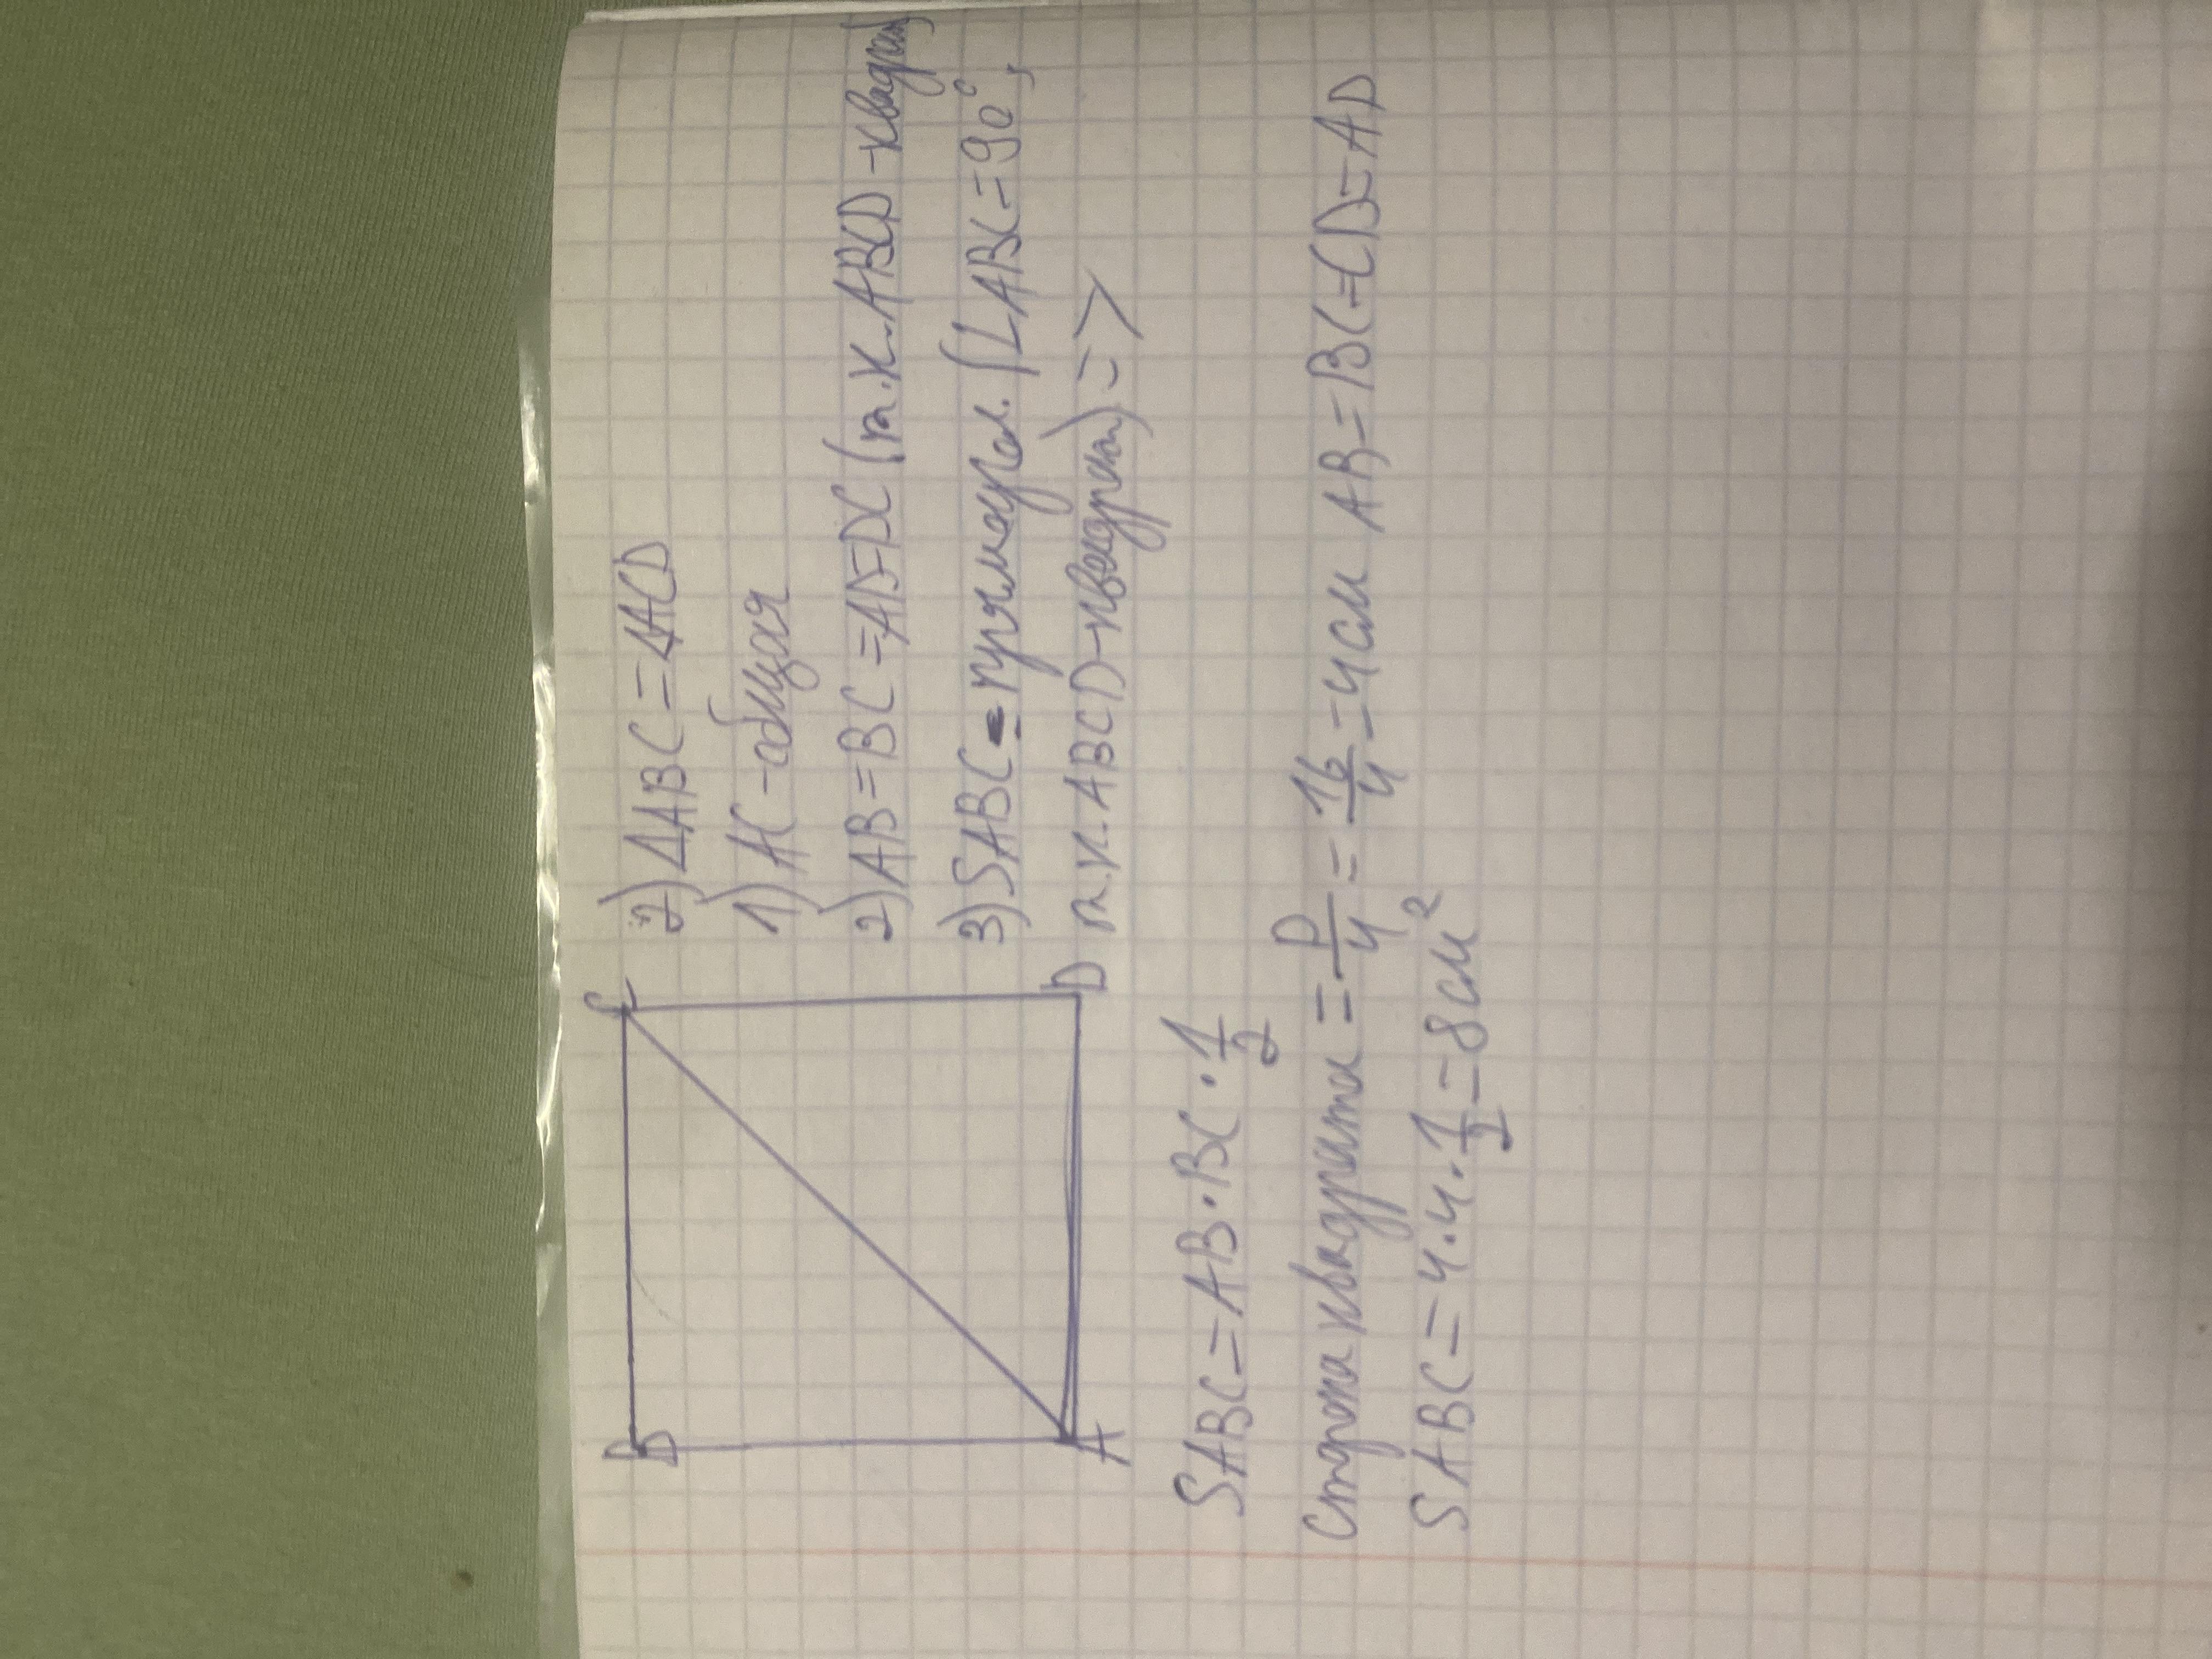 B
C
A
D
2) ΔABC=ΔACD
1) AC-общая
2) AB=BC=AD=DC (т.к. ABCD-квадрат)
3) SABC - прямоугол. (∠ABC=90°,
т.к. ABCD-квадрат) =>
SABC=AB·BC·1/2
Сторона квадрата = P/4 = 16/4 = 4см AB=BC=CD=AD
SABC=4·4·1/2=8см²